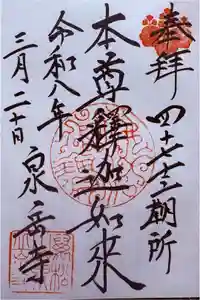 奉拝 四十七士之廟所
本尊釋迦如来
令和八年
三月二十日
泉岳寺